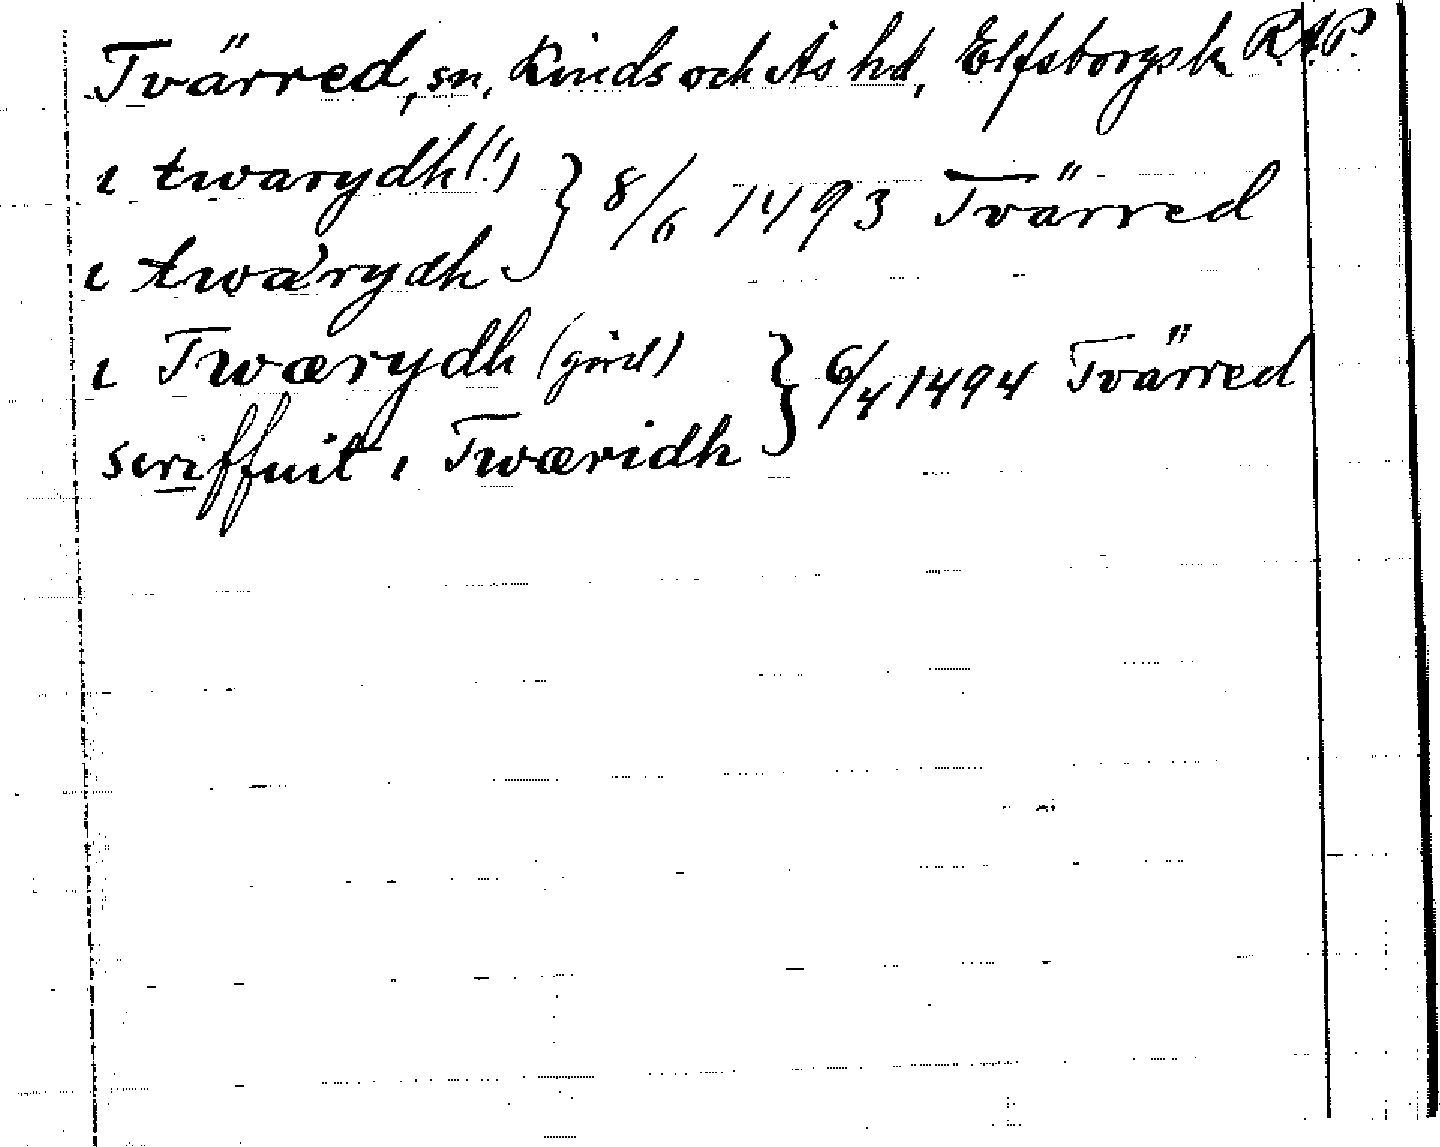 Tvärred, sn, Kinds och Ås hd, Elfsborgs l. R.A.P.
i twarydh (!) } 8/6 1493 Tvärred
i twarydh
i Twærydh (gård) } 6/4 1494 Tvärred
scriffuit i Twæridh